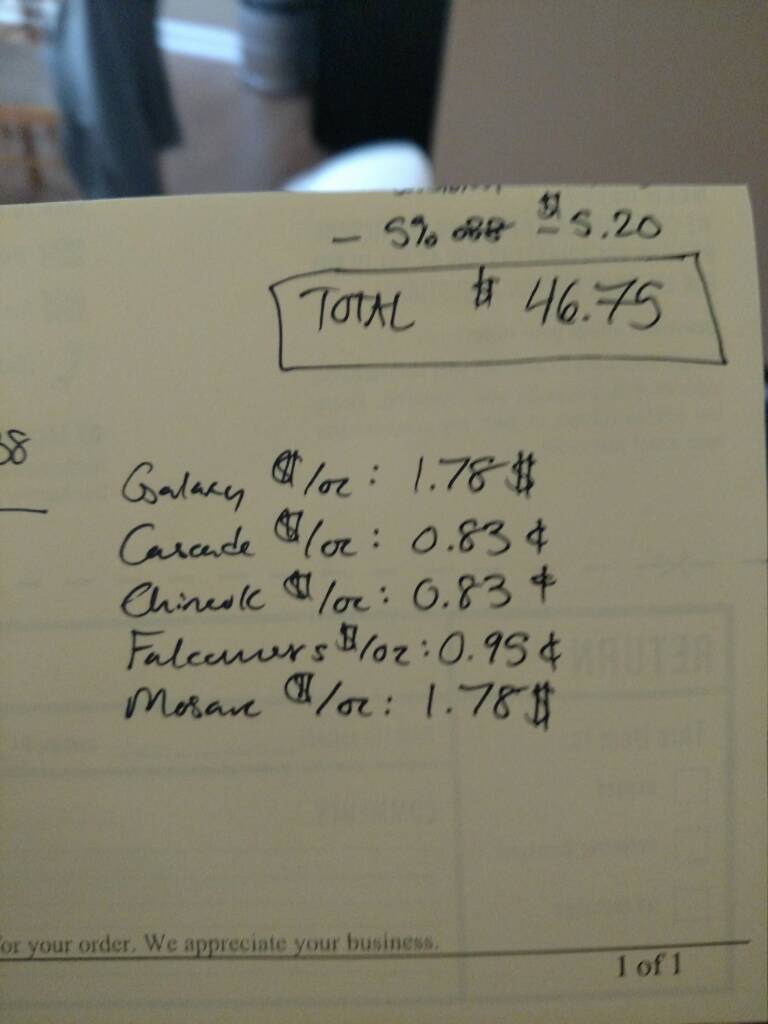 - 5% off $ -5.20
TOTAL $ 46.75
38
Galaxy $/oz: 1.78$
Cascade $/oz: 0.83 ¢
Chinook $/oz: 0.83 ¢
Falconers $/oz: 0.95 ¢
Mosaic $/oz: 1.78$
RETURN
COMMENTS
for your order. We appreciate your business.
1 of 1